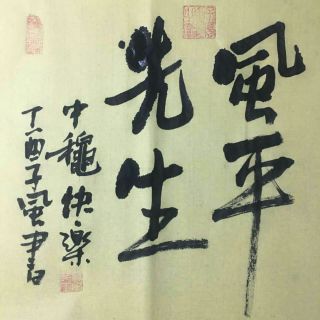 風平
先生
中穐快樂
丁酉子風書